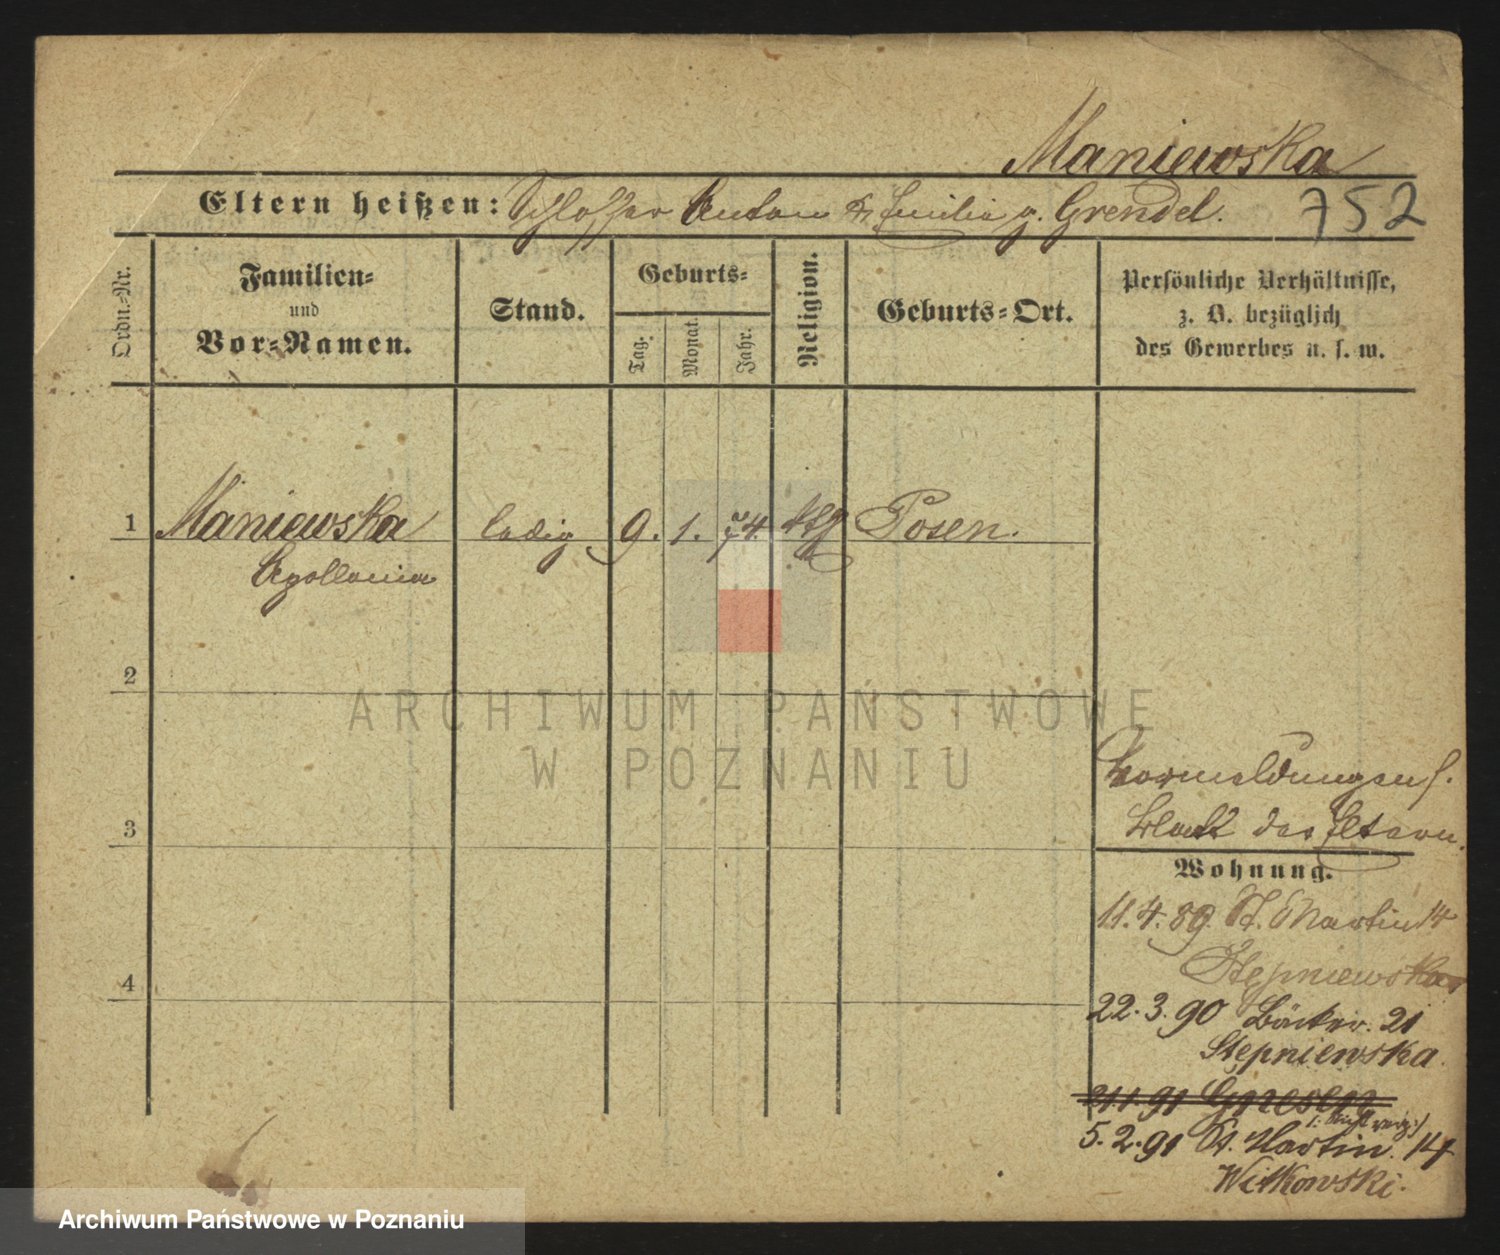 Maniewska
Eltern heißen: Schlosser Anton u. Emilie g. Grendel.
752
Ordn.-Nr.
Familien-
und
Vor-Namen.
Stand.
Geburts-
Tag.
Monat.
Jahr.
Religion.
Geburts-Ort.
Persönliche Verhältnisse,
z. B. bezüglich
des Gewerbes u. s. w.
1 Maniewska ledig 9. 1. 74. ktg Posen.
Apollonia
2
ARCHIWUM PAŃSTWOWE
W POZNANIU
Vormeldungen s.
3
Blatt der Eltern.
Wohnung.
11.4.89. St. Martin 14
Stepniewska
4
22.3.90 Bäcker. 21
Stepniewska.
21.1.91 Gnesen
5.2.91 St. Martin. 14
Witkowski.
Archiwum Państwowe w Poznaniu